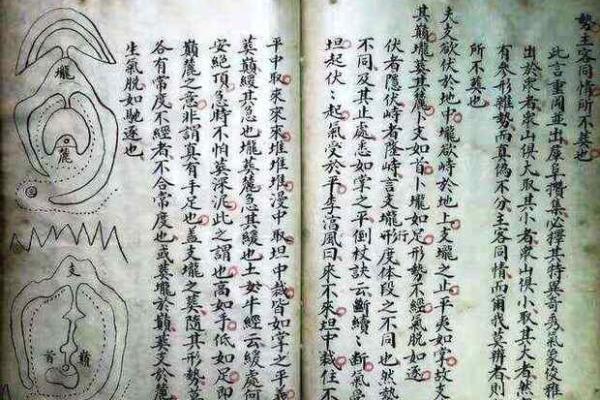 勢主客同情所不葬也
此言重岡並出羣阜攢集必擇其特異奇秀氣象俊雅
出於衆者衆山俱大取其小者衆山俱小取其大者然
有參形雜勢而真偽不分主客同情而爾我莫辨者則
所不葬也
夫支欲伏於地中壠欲峙於地上支壠之止平夷如掌故支
其巔壠葬其麓卜支如首卜壠如足形勢不經氣脫如逐
伏者隱伏峙者隆峙言支壠行形度體段之不同也然勢
不同及其止處悉如掌之平倒杖訣云斷續〻斷氣受
坦起伏〻起氣受於平李淳風曰來不來坦中裁住不
平中取來來來堆堆堆漫中取坦中裁皆如掌之平
葬巔緩其急也壠葬麓急其緩也土女牛經云緩處何
安絕頂急時不怕葬深泥此之謂也高如手低如足即
巔麓之意非謂真有手足也盖支壠之葬隨其形勢莫
各有常度不經者不合常度也或葬壠於巔葬支於麓
生氣脫如馳逐也
壠
麓
支
首
巔